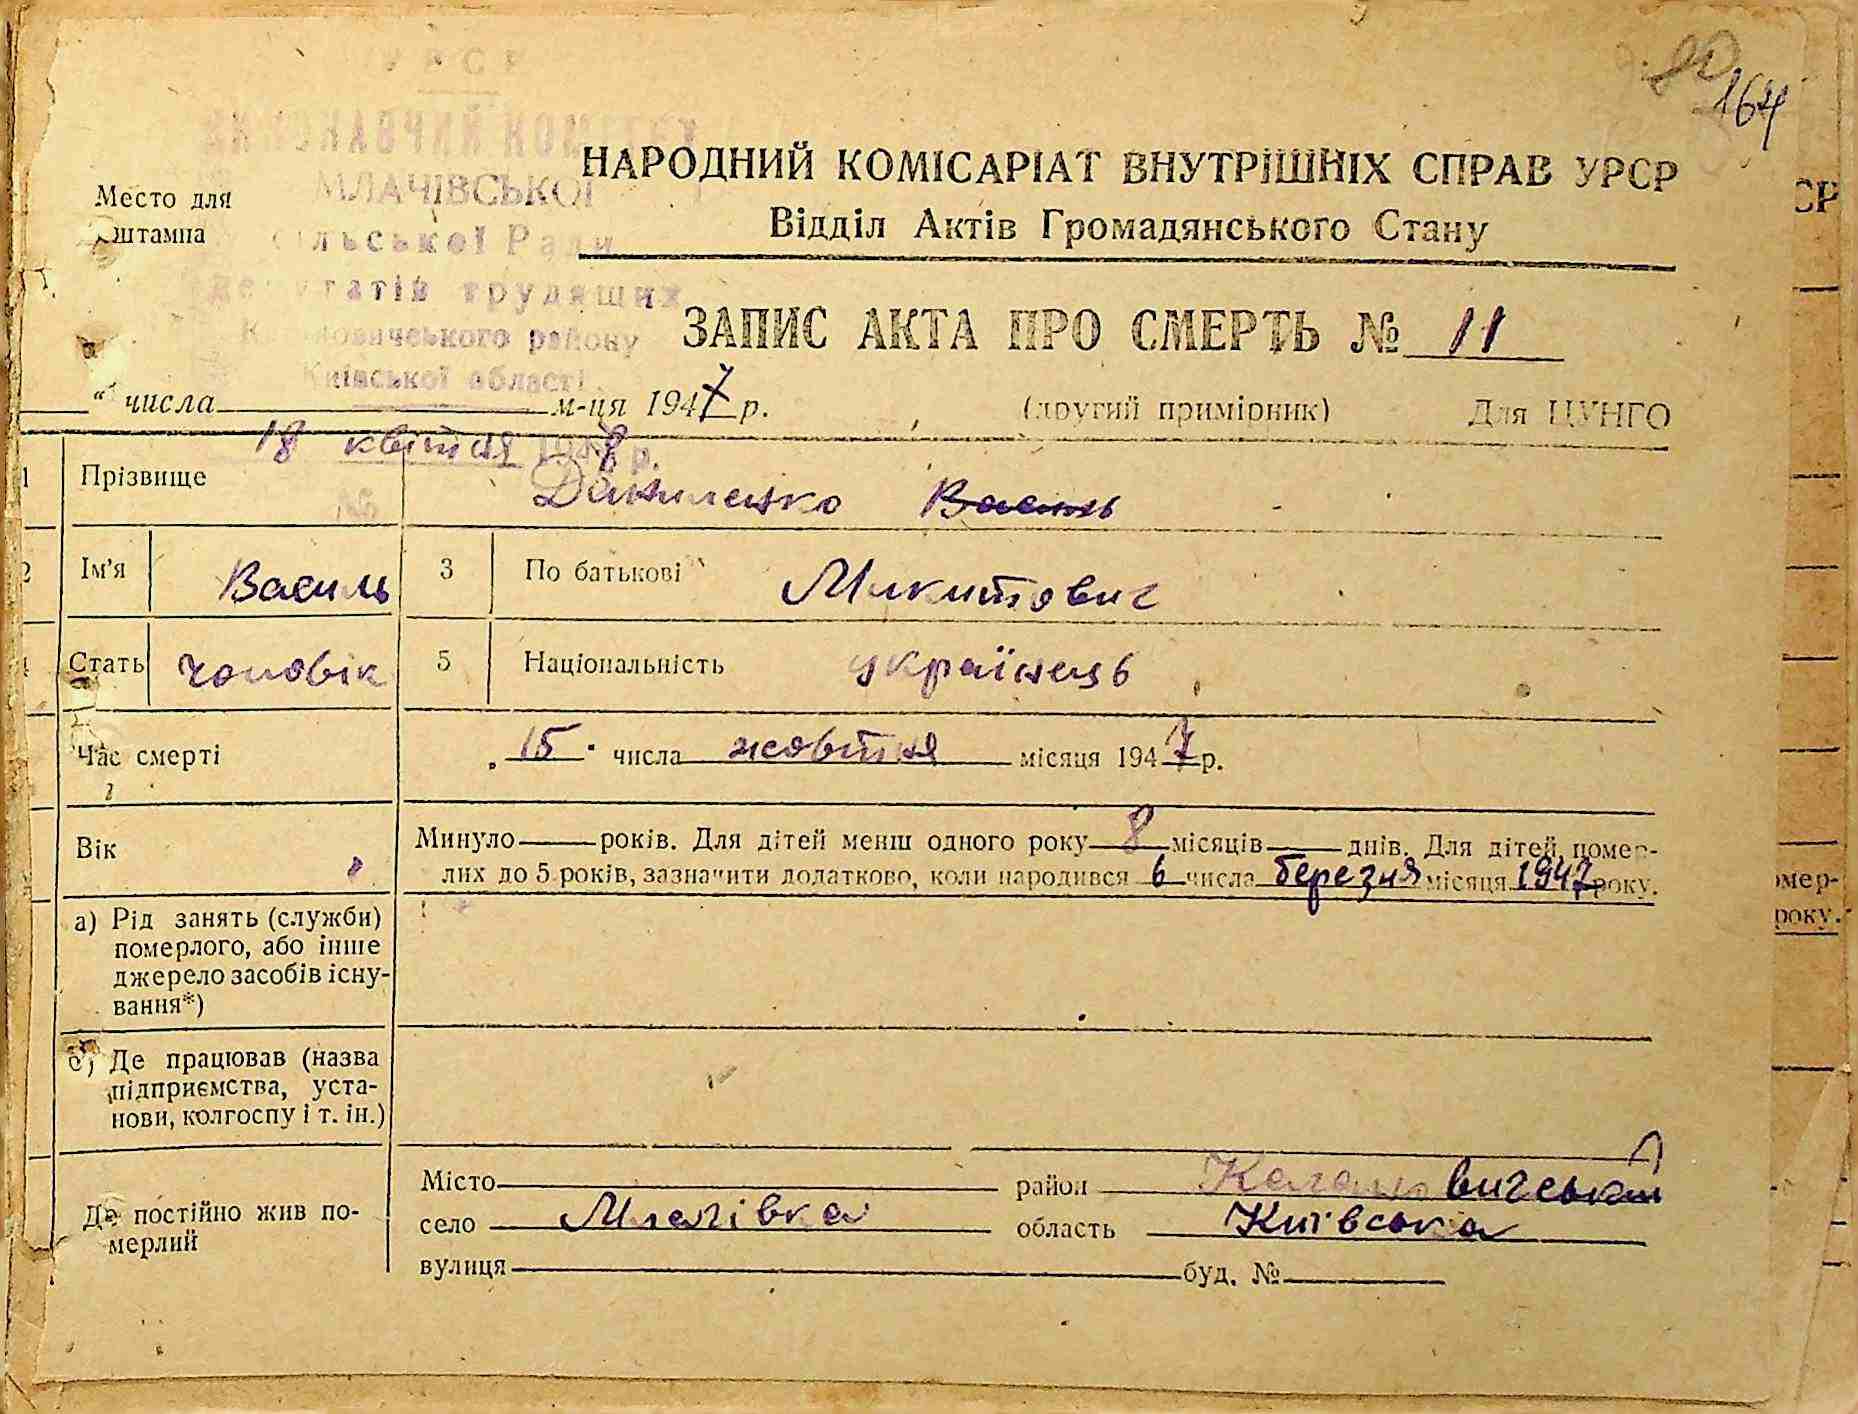 164
УРСР
ВИКОНАВЧИЙ КОМІТЕТ
МЛАЧІВСЬКОЇ
сільської Ради
депутатів трудящих
Кагановичського району
Київської області
18 квітня 1948 р.
№
Место для
штампа
НАРОДНИЙ КОМІСАРІАТ ВНУТРІШНІХ СПРАВ УРСР
Відділ Актів Громадянського Стану
ЗАПИС АКТА ПРО СМЕРТЬ № 11
“ числа м-ця 1947 р. (другий примірник) Для ЦУНГО
1 Прізвище Даниленко Василь
2 Ім’я Василь 3 По батькові Микитович
Стать чоловік 5 Національність українець
Час смерті 15 числа жовтня місяця 1947 р.
Вік Минуло років. Для дітей менш одного року 8 місяців днів. Для дітей, помер-
лих до 5 років, зазначити додатково, коли народився 6 числа березня місяця 1947 року.
а) Рід занять (служби)
померлого, або інше
джерело засобів існу-
вання*)
Де працював (назва
підприємства, уста-
нови, колгоспу і т. ін.)
Де постійно жив по-
мерлий
Місто район Кагановичський
село Млачівка область Київська
вулиця буд. №
СР
омер-
року.